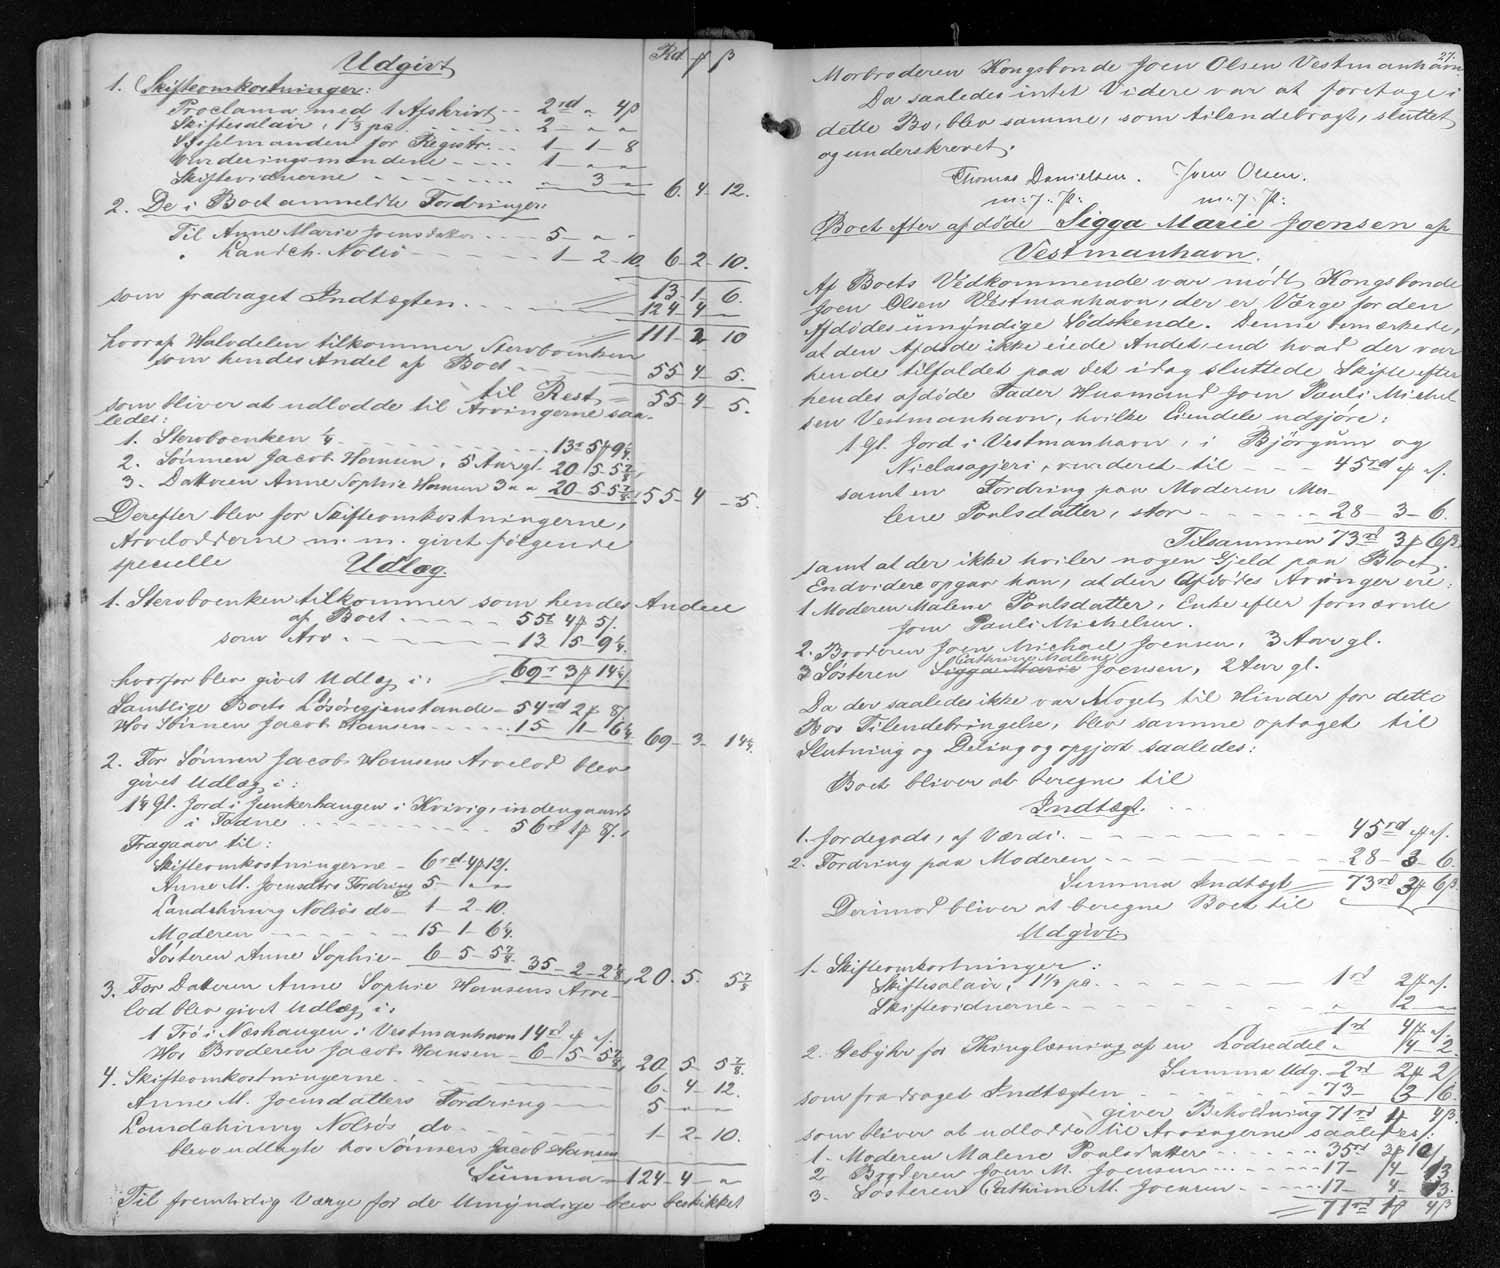 Udgivt
Rd # β
1. Skifteomkostninger:
Proclama med 1 Afskrivt -- 2rd „ 4β
Skiftesalair, 1 1/3 pc. - - - 2 - „ - „
Sysselmanden for Registr. - - 1 - 1 - 8
Vurderingsmændene - - - 1 - „ - „
Skiftevidnerne - - - „ 3 „ 6. 4 - 12.
2. De i Boet anmeldte Fordringer:
Til Anne Marie Joensdatter - - 5 - „ - „
„ Landch. Nolsö - - - 1 - 2 - 10 6 - 2 - 10.
13 - 1 - 6.
som fradraget Indtægten - - - 124 - 4 -
111 - 2 - 10
hvoraf Halvdelen tilkommer Stervboenken
som hendes Andel af Boet - - - 55 - 4 - 5.
til Rest = 55 - 4 - 5.
som bliver at udlodde til Arvingerne saa-
ledes:
1. Stervboenken 1/4 - - - 13rd 5# 9 1/4
2. Sønnen Jacob Hansen, 5 Aar gl. 20 - 5 - 5 7/8
3. Datteren Anne Sophie Hansen 3 „ „ 20 - 5 - 5 7/8 55 - 4 - 5.
Derefter blev for Skifteomkostningerne,
Arvelodderne m. m. givet følgende
specielle Udlæg.
1. Stervboenken tilkommer som hendes Andeel
af Boet - - - 55rd 4# 5β.
som Arv - - - 13 - 5 - 9 1/4.
69rd 3# 14 1/4β
hvorfor blev givet Udlæg i:
Samtlige Boets Løsøregjenstande - 54rd 2# 8β
Hos Sönnen Jacob Hansen - - - 15 - 1 - 6 1/4 69 - 3 - 14 1/4.
2. For Sönnen Jacob Hansens Arvelod blev
givet Udlæg i:
1 1/4 Gl. Jord i Junkerhaugen i Kvivig, indengaards
i Tödne - - - 56rd 1# 8β.
Fragaaer til:
Skifteomkostningerne - 6rd 4# 12β.
Anne M. Joensdtrs Fordring 5 - „ - „
Landchirurg Nolsös do - 1 - 2 - 10.
Moderen - - - 15 - 1 - 6 1/4.
Sösteren Anne Sophie - 6 - 5 - 5 7/8. 35 - 2 - 2 1/8, 20. 5. 5 7/8
3. For Datteren Anne Sophie Hansens Arve-
lod blev givet Udlæg i:
1 Trö i Næshaugen i Vestmanhavn 14rd „# „β.
Hos Broderen Jacob Hansen - 6 - 5 - 5 7/8, 20 5. 5 7/8.
4. Skifteomkostningerne - - - 6. 4 - 12.
Anne M. Joensdatters Fordring - - - 5 - „ - „
Landchirurg Nolsös do - - - 1 - 2 - 10.
blev udlagte hos Sønnen Jacob Hansen
Summa - 124 - 4 - „
Til fremtidig Værge for de Umyndige blev beskikket
27.
Morbroderen Kongsbonde Joen Olsen Vestmanhavn.
Da saaledes intet Videre var at foretage i
dette Bo, blev samme, som tilendebragt, sluttet
og underskrevet.
Thomas Danielsen. Joen Olsen.
m: f. P: m: f. P:
Boet efter afdöde Sigga Marie Joensen af
Vestmanhavn.
Af Boets Vedkommende var mödt Kongsbonde
Joen Olsen Vestmanhavn, der er Værge for den
Afdödes umyndige Södskende. Denne bemærkede,
at den Afdöde ikke eiede Andet end hvad der var
hende tilfaldet paa det idag sluttede Skifte efter
hendes afdöde Fader Husmand Joen Pauli Michel
sen Vestmanhavn, hvilke Eiendele udgjöre:
1 Gl. Jord i Vestmanhavn, i Björgum og
Niclasagjeri, vurderet til - - - 45rd „# „β.
samt en Fordring paa Moderen Ma-
lene Poulsdatter, stor - - - 28 - 3 - 6.
Tilsammen 73rd 3# 6β.
samt at der ikke hviler nogen Gjeld paa Boet.
Endvidere opgav han, at den Afdödes Arvinger ere:
1 Moderen Malene Poulsdatter, Enke efter fornævnte
Joen Pauli Michelsen.
2. Broderen Joen Michael Joensen, 3 Aar gl.
Cathrine Malene
3 Søsteren Sigga Marie Joensen, 2 Aar gl.
Da der saaledes ikke var Noget til Hinder for dette
Bos Tilendebringelse, blev samme optaget til
Slutning og Deling og opgjort saaledes:
Boet bliver at beregne til
Indtægt.
1. Jordegods, af Værdi - - - 45rd „# „β.
2. Fordring paa Moderen - - - 28 - 3 - 6.
Summa Indtægt = 73rd 3# 6β
Derimod bliver at beregne Boet til
Udgivt
1. Skifteomkostninger:
Skiftesalair, 1 1/3 pc. - - - 1rd 2# „β.
Skiftevidnerne - - - „ 2 „
1rd 4# „β.
2. Gebyhr for Thinglæsning af en Lodseddel „ 4 - 2.
Summa Udg. 2rd 2# 2β
som fradraget Indtægten - - - 73 - 3 - 6.
giver Beholdning 71rd 1# 4β
som bliver at udlodde til Arvingerne saaledes:
1. Moderen Malene Poulsdatter - - - 35rd 3# 10β
2 Broderen Joen M. Joensen - - - 17 - 4 - 13
3. Søsteren Cathrine M. Joensen - - - 17 - 4 - 13.
71rd 1# 4β